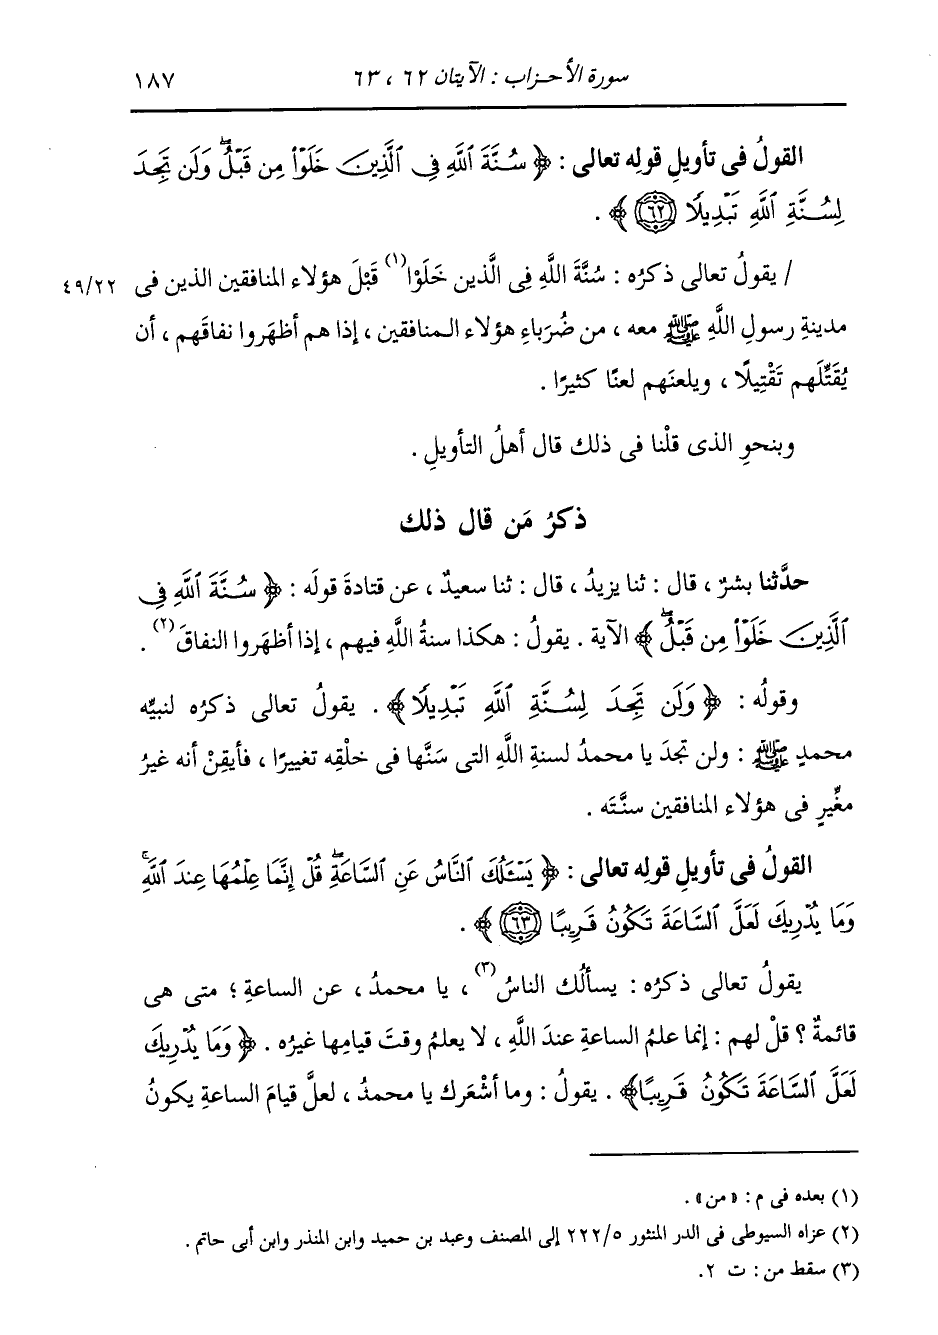 سورة الأحزاب : الآيتان ٦٢ ، ٦٣ ١٨٧
القولُ فى تأويلِ قولِه تعالى : ﴿ سُنَّةَ ٱللَّهِ فِى ٱلَّذِينَ خَلَوْا۟ مِن قَبْلُ ۖ وَلَن تَجِدَ
لِسُنَّةِ ٱللَّهِ تَبْدِيلًا ٦٢ ﴾ .
/ يقولُ تعالى ذكرُه : سُنَّةَ اللَّهِ فِى الَّذين خَلَوْا(١) قَبْلَ هؤلاء المنافقين الذين فى ٤٩/٢٢
مدينةِ رسولِ اللَّهِ ﷺ معه ، من ضُرَباءِ هؤلاء المنافقين ، إذا هم أظهَروا نفاقَهم ، أن
يُقَتِّلَهم تَقْتِيلًا ، ويلعنَهم لعنًا كثيرًا .
وبنحوِ الذى قلْنا فى ذلك قال أهلُ التأويلِ .
ذكرُ مَن قال ذلك
حدَّثنا بشرٌ ، قال : ثنا يزيدُ ، قال : ثنا سعيدٌ ، عن قتادةَ قولَه : ﴿ سُنَّةَ ٱللَّهِ فِى
ٱلَّذِينَ خَلَوْا۟ مِن قَبْلُ ۖ ﴾ الآية . يقولُ : هكذا سنةُ اللَّهِ فيهم ، إذا أظهَروا النفاقَ(٢) .
وقولُه : ﴿ وَلَن تَجِدَ لِسُنَّةِ ٱللَّهِ تَبْدِيلًا ﴾ . يقولُ تعالى ذكرُه لنبيِّه
محمدٍ ﷺ : ولن تجدَ يا محمدُ لسنةِ اللَّهِ التى سَنَّها فى خلْقِه تغييرًا ، فأيقِنْ أنه غيرُ
مغيِّرٍ فى هؤلاء المنافقين سنَّتَه .
القولُ فى تأويلِ قولِه تعالى : ﴿ يَسْـَٔلُكَ ٱلنَّاسُ عَنِ ٱلسَّاعَةِ ۖ قُلْ إِنَّمَا عِلْمُهَا عِندَ ٱللَّهِ ۚ
وَمَا يُدْرِيكَ لَعَلَّ ٱلسَّاعَةَ تَكُونُ قَرِيبًا ٦٣ ﴾ .
يقولُ تعالى ذكرُه : يسألُك الناسُ(٣) ، يا محمدُ ، عن الساعةِ ؛ متى هى
قائمةٌ ؟ قلْ لهم : إنما علمُ الساعةِ عندَ اللَّهِ ، لا يعلمُ وقتَ قيامِها غيرُه . ﴿ وَمَا يُدْرِيكَ
لَعَلَّ ٱلسَّاعَةَ تَكُونُ قَرِيبًا﴾ . يقولُ : وما أشْعَرك يا محمدُ ، لعلَّ قيامَ الساعةِ يكونُ
(١) بعده فى م : « من » .
(٢) عزاه السيوطى فى الدر المنثور ٢٢٢/٥ إلى المصنف وعبد بن حميد وابن المنذر وابن أبى حاتم .
(٣) سقط من : ت ٢.